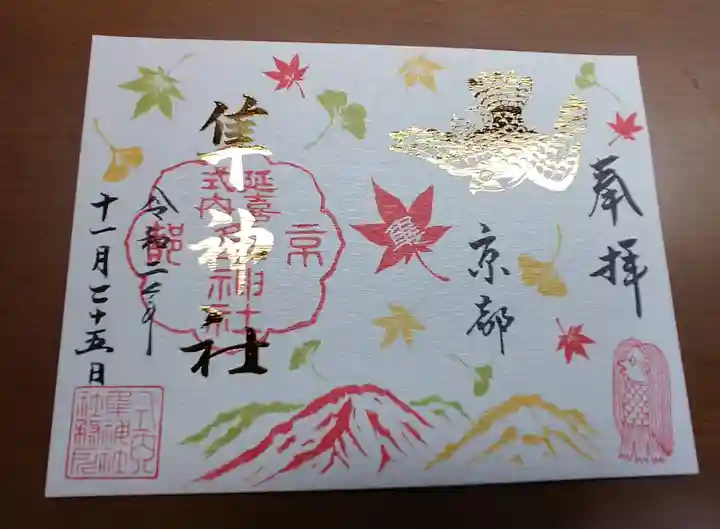 奉拝
京都
隼
隼神社
京都
延喜
式内
隼神社
令和二年
十一月二十五日